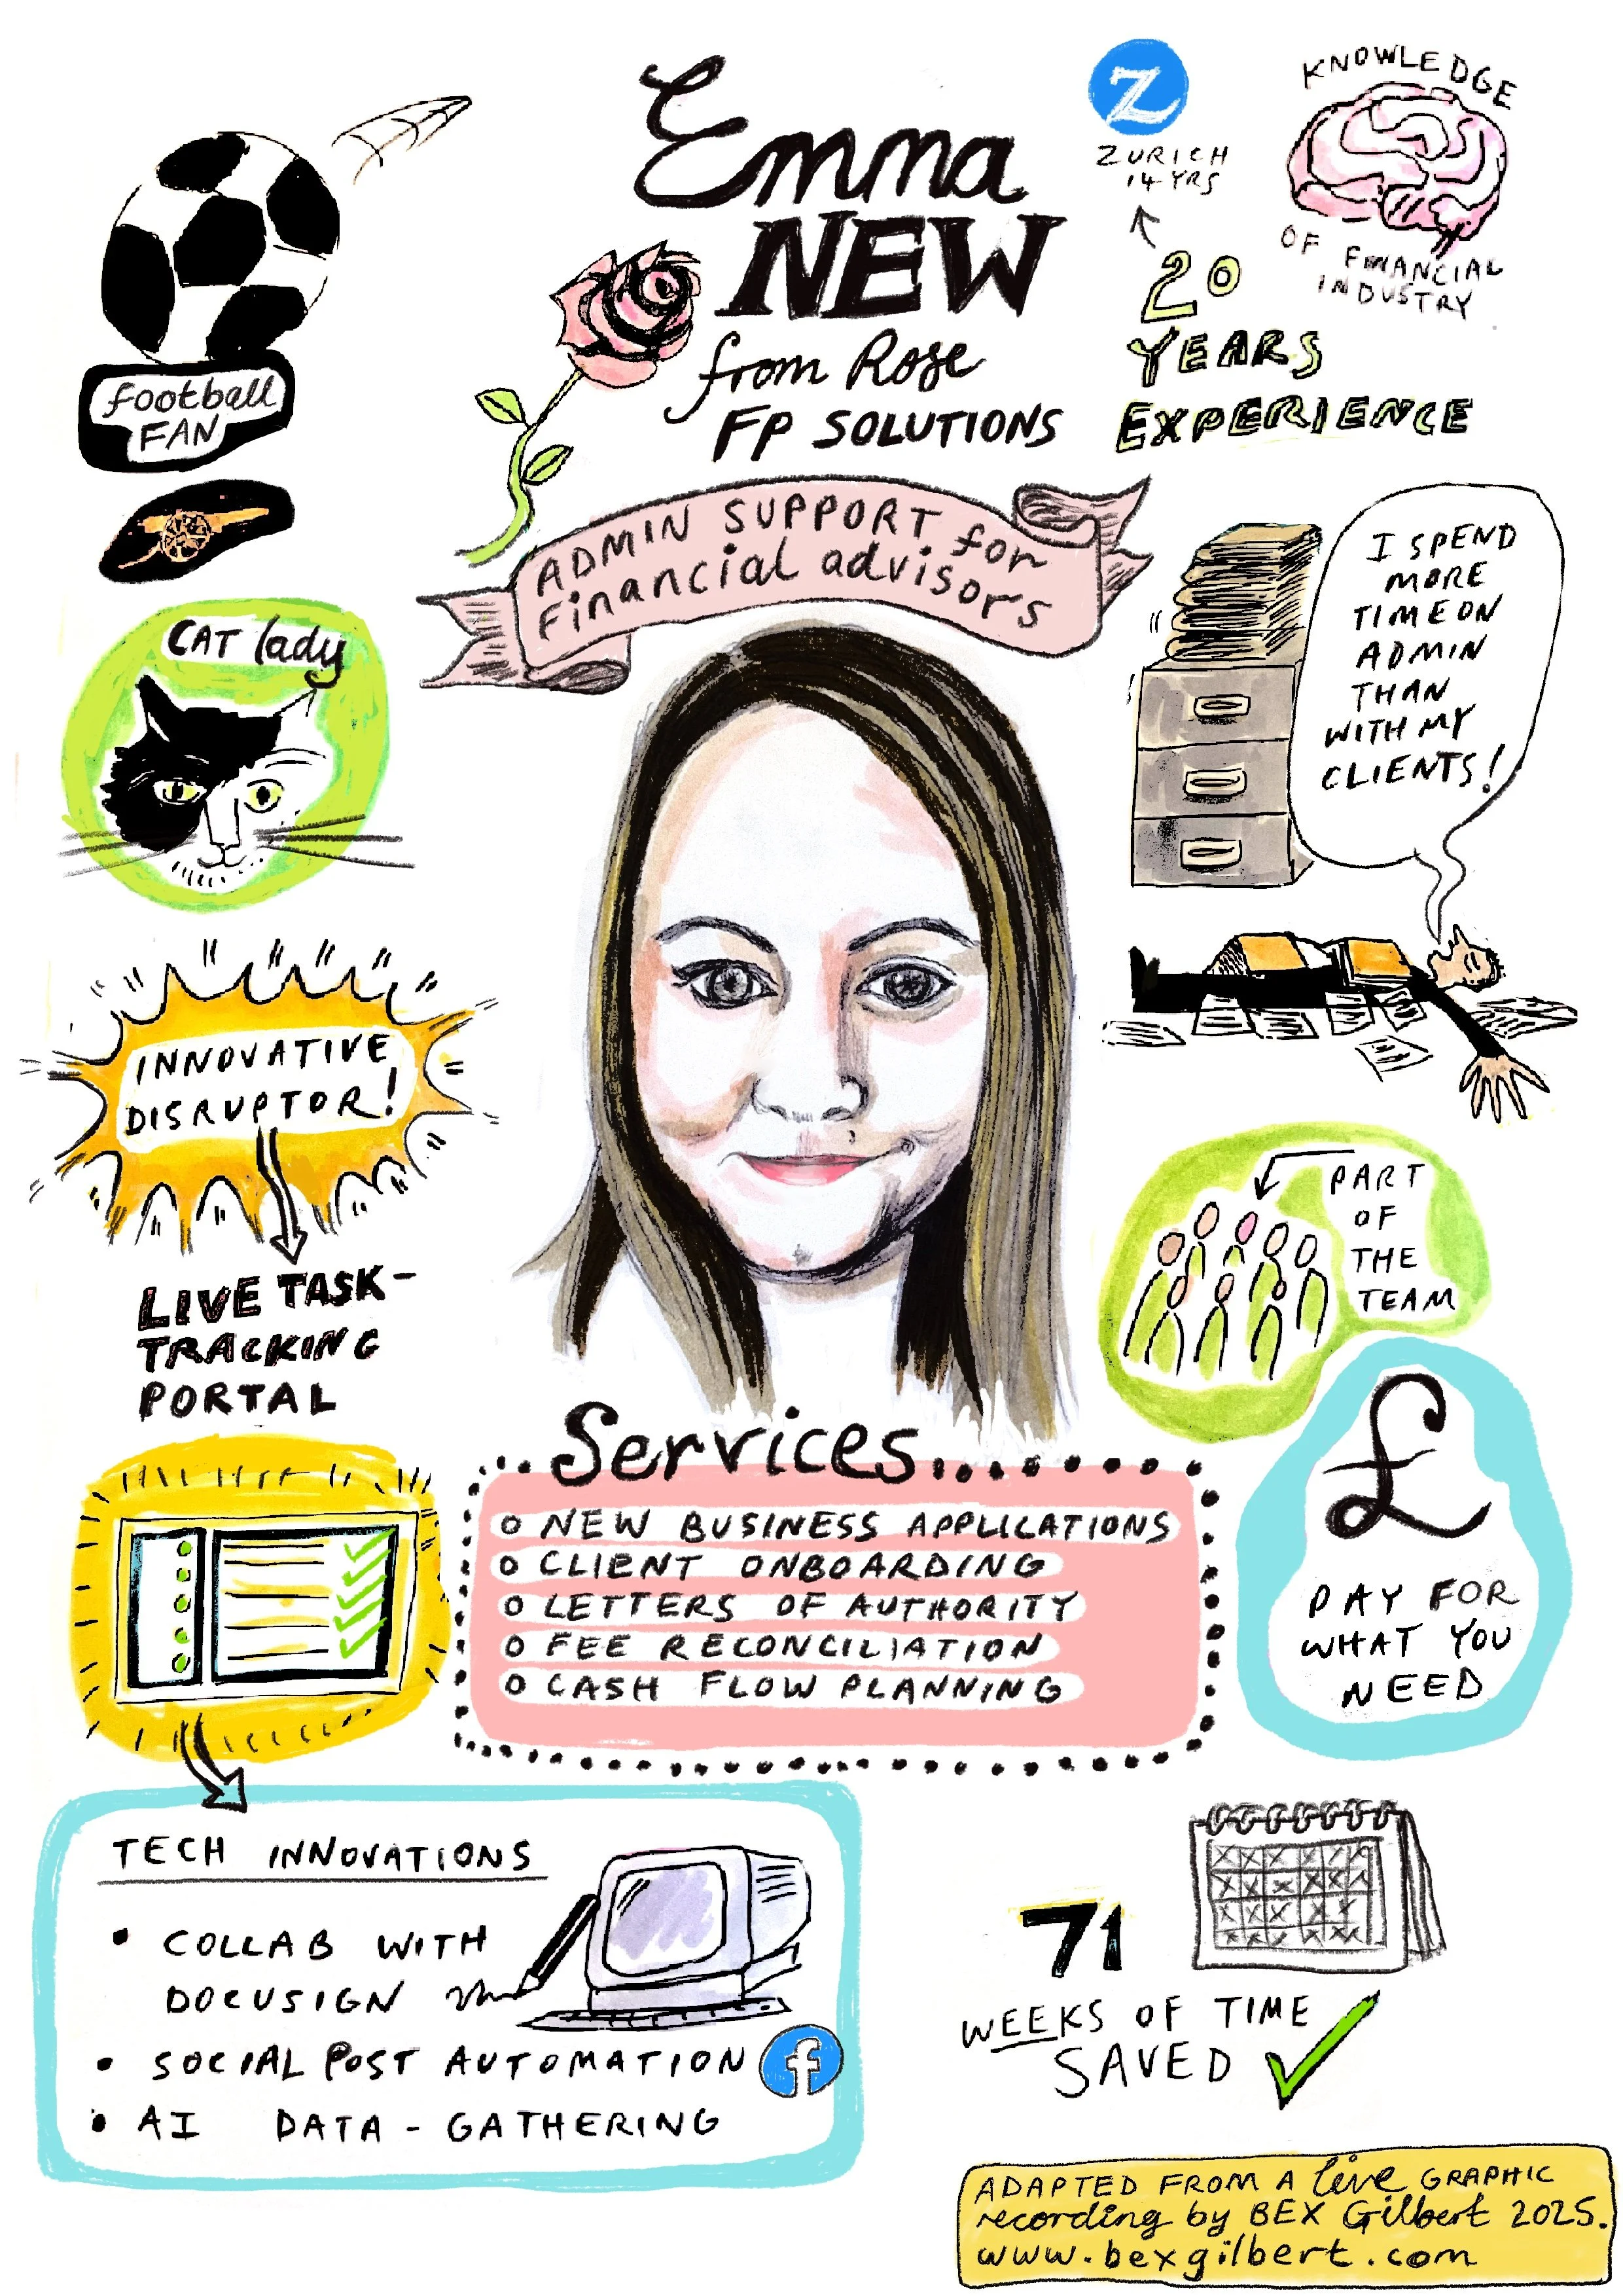 Emma
NEW
from Rose
FP SOLUTIONS
ADMIN SUPPORT for
Financial advisors
Z
ZURICH
14 YRS
KNOWLEDGE
OF FINANCIAL
INDUSTRY
20
YEARS
EXPERIENCE
football
FAN
CAT lady
INNOVATIVE
DISRUPTOR!
LIVE TASK-
TRACKING
PORTAL
I SPEND
MORE
TIME ON
ADMIN
THAN
WITH MY
CLIENTS!
PART
OF
THE
TEAM
Services...
o NEW BUSINESS APPLICATIONS
o CLIENT ONBOARDING
o LETTERS OF AUTHORITY
o FEE RECONCILIATION
o CASH FLOW PLANNING
£
PAY FOR
WHAT YOU
NEED
TECH INNOVATIONS
• COLLAB WITH
DOCUSIGN
• SOCIAL POST AUTOMATION f
• AI DATA-GATHERING
71
WEEKS OF TIME
SAVED
ADAPTED FROM A live GRAPHIC
recording by BEX Gilbert 2025.
www.bexgilbert.com